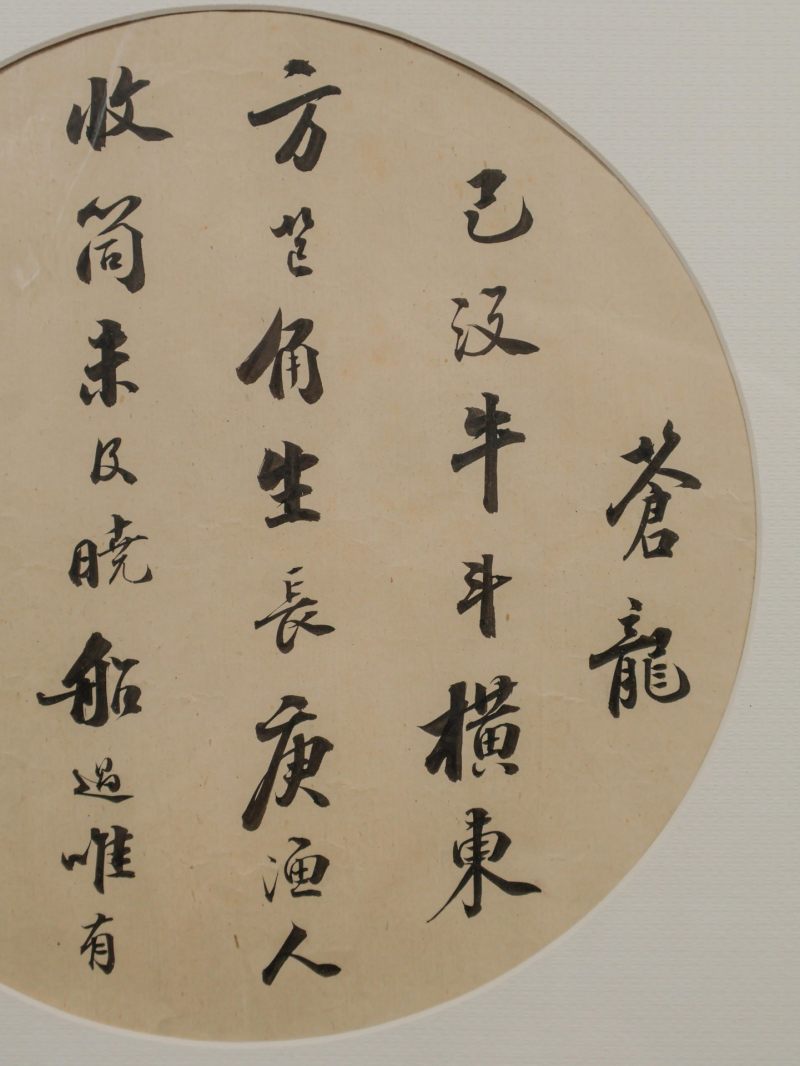 蒼龍
已没牛斗橫東
方芒角生長庚渔人
收筒未及曉船過唯有